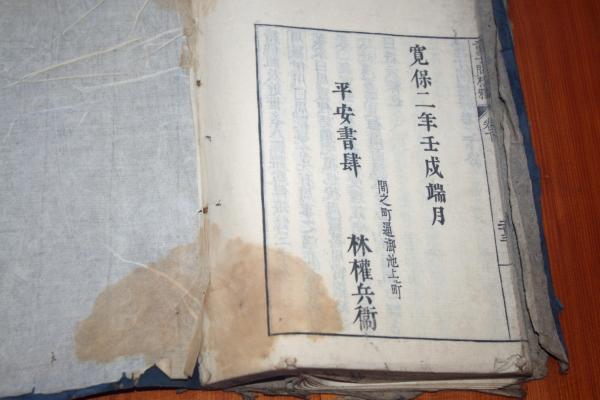 寛保二年壬戌端月
平安書肆
間之町通御池上町
林權兵衞